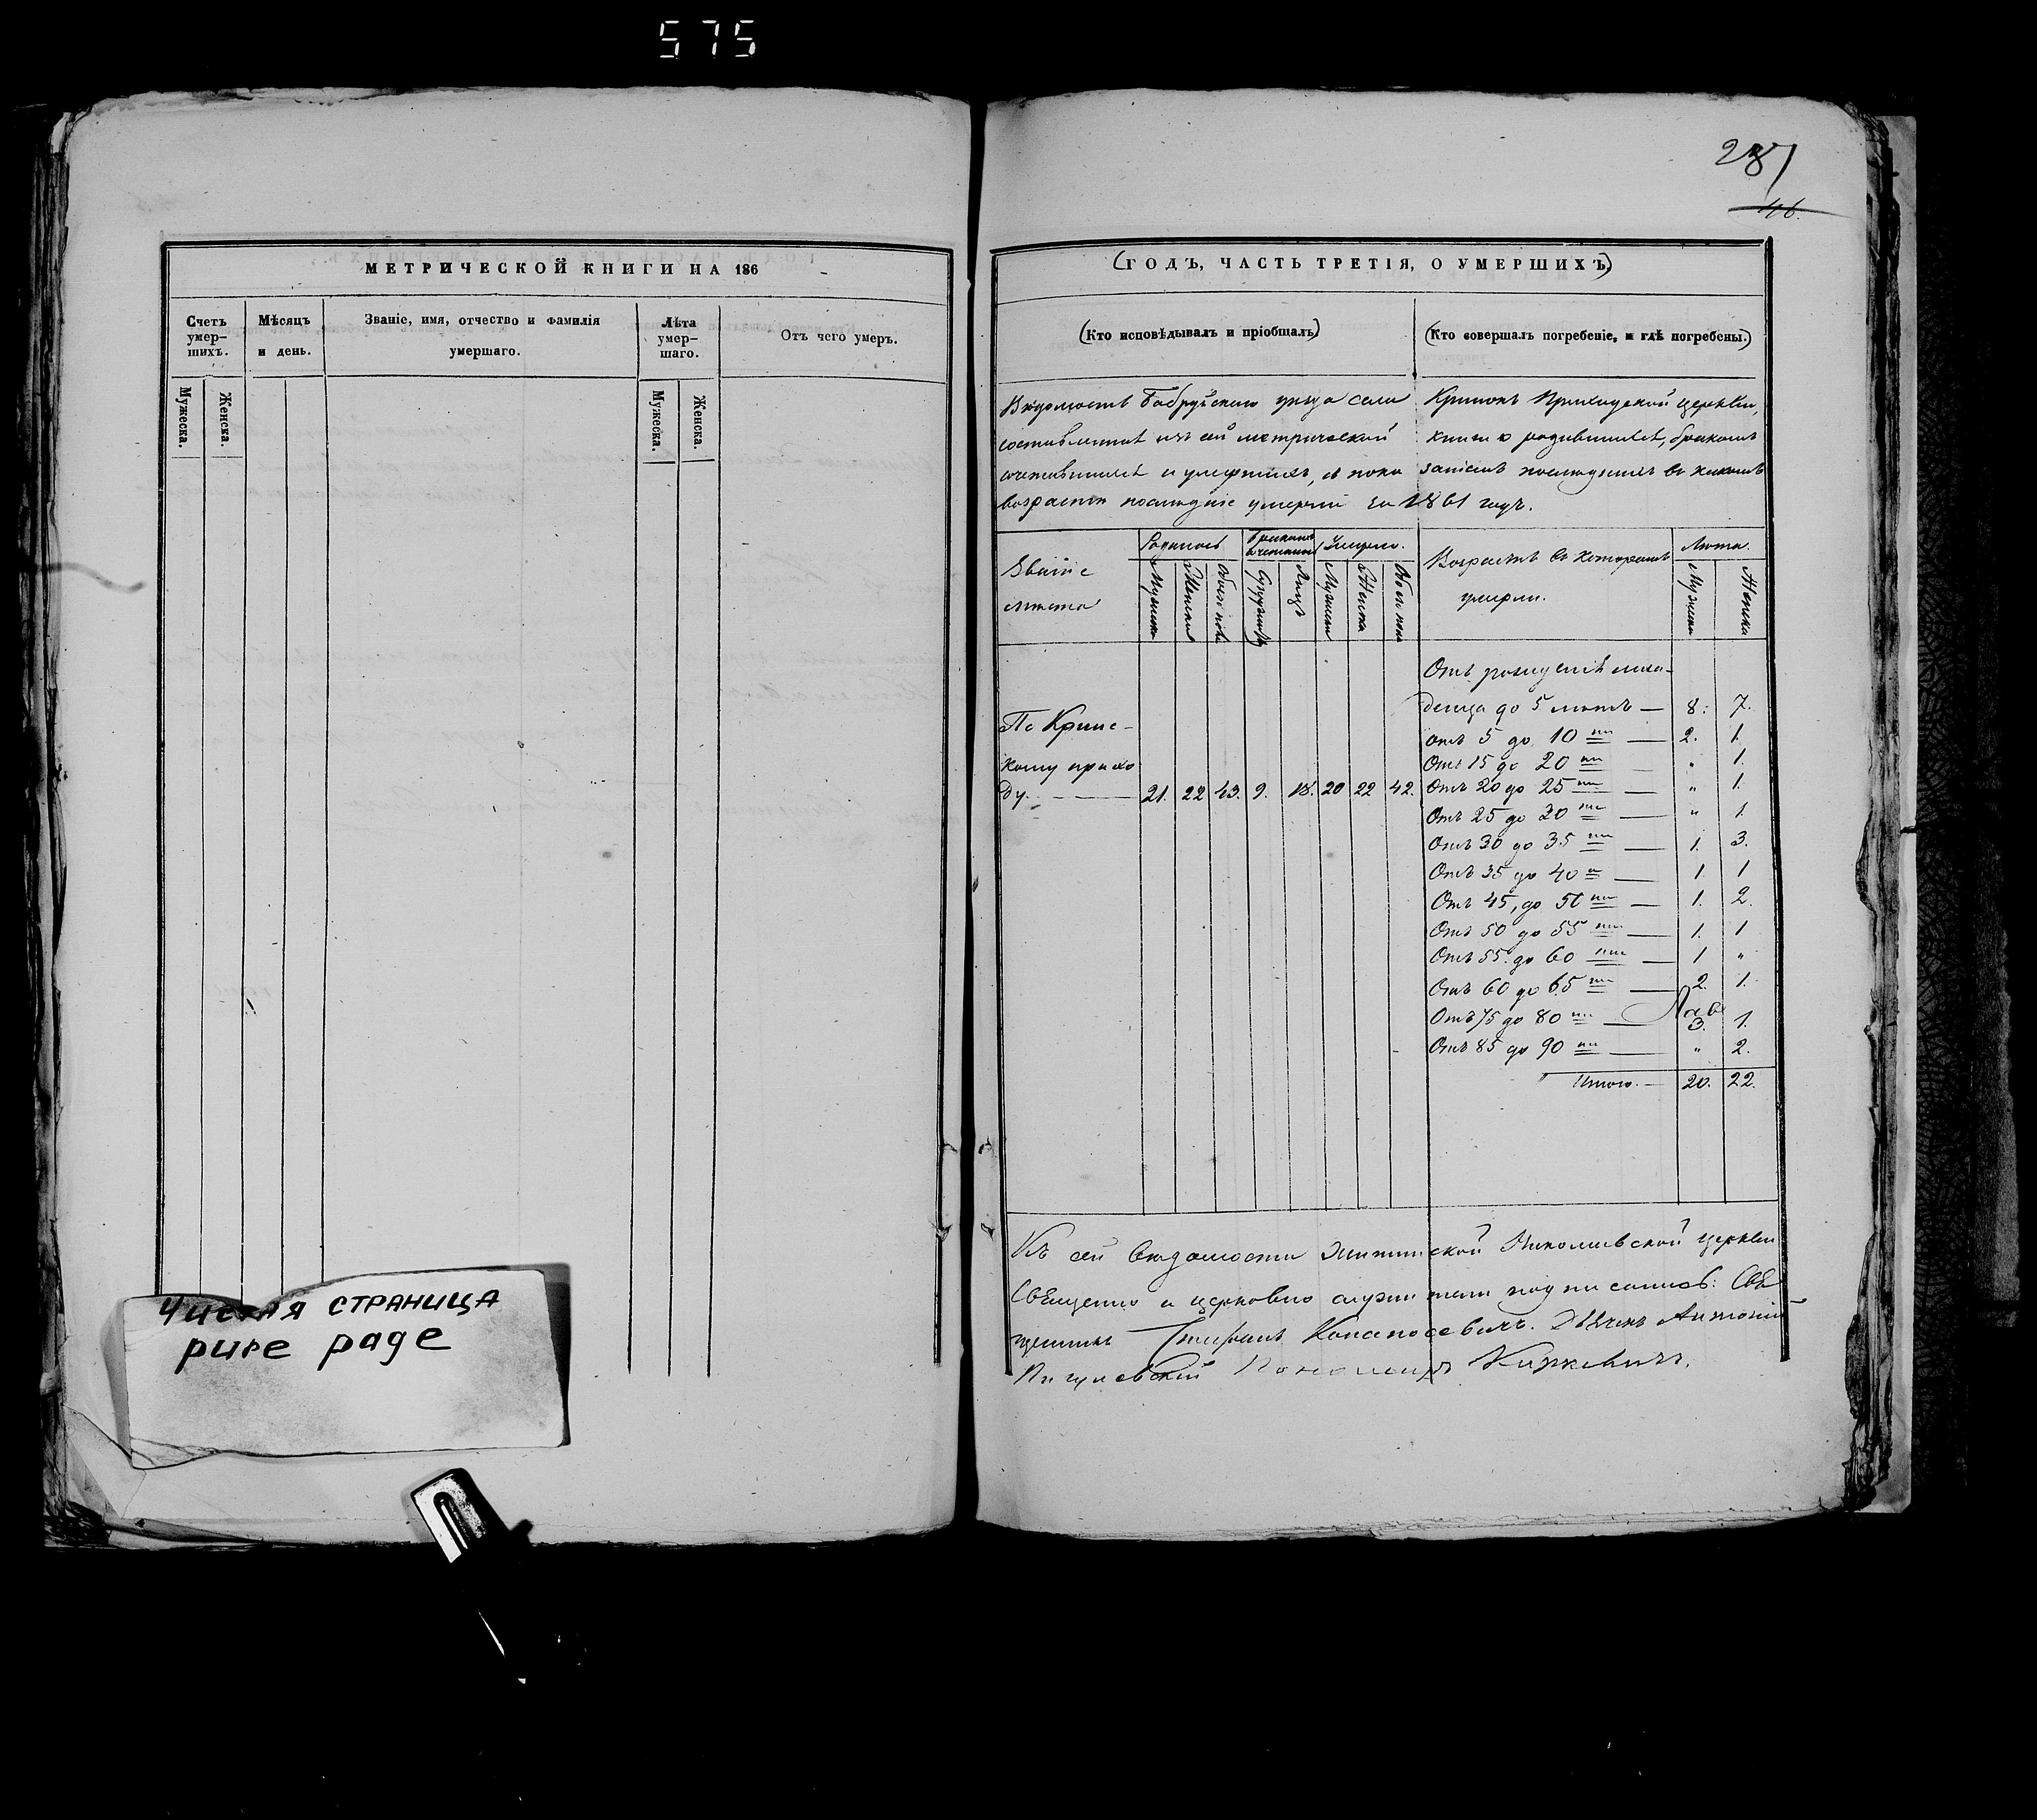 575
287
46.
МЕТРИЧЕСКОЙ КНИГИ НА 186
Счетъ умер-шихъ.
Мѣсяцъ и день.
Званіе, имя, отчество и фамилія умершаго.
Лѣта умер-шаго.
Отъ чего умеръ.
Мужеска.
Женска.
Мужеска.
Женска.
Чистая страница
pure page
(ГОДЪ, ЧАСТЬ ТРЕТІЯ, О УМЕРШИХЪ)
(Кто исповѣдывалъ и пріобщалъ)
(Кто совершалъ погребеніе, и гдѣ погребены.)
Вѣдомость Бобруйскаго уѣзда села Кринокъ Приходской церкви,
составленная изъ сей метрической книги о родившихся, бракомъ
сочетавшихся и умершихъ, съ пока записью последнихъ въ какомъ
возрастѣ последніе умерли за 1861 годъ.
Званіе мѣста
Родилось
Бракомъ сочетано
Умерло.
Возрастъ въ которомъ умерли.
Лѣта.
Мужска
Женска
Обоего пола
Супружествъ
Лицъ
Мужска
Женска
Обоего пола
Мужска
Женска
По Кринс-
кому прихо
ду. — 21. 22 43. 9. 18. 20 22 42.
Отъ рожденія мла-
денца до 5 лѣтъ — 8. 7.
отъ 5 до 10 ти — 2. 1.
Отъ 15 до 20 ти — " 1.
Отъ 20 до 25 ти — " 1.
Отъ 25 до 30 ти — " 1.
Отъ 30 до 35 ти — 1. 3.
Отъ 35 до 40 а — 1. 1
Отъ 45, до 50 ти — 1. 2.
Отъ 50 до 55 ти — 1. 1
Отъ 55. до 60 ти — 1 "
Отъ 60 до 65 ти — 2. 1.
Отъ 75 до 80 ти — 3. 1.
Отъ 85 до 90 ти — " 2.
Итого. — 20. 22.
Къ сей вѣдомости Николаевской церкви
Священно и церковно служители подписались: Свя
щенникъ Стефанъ Дьячекъ Антоній
Пигулевскій Пономарь Киркевичъ.